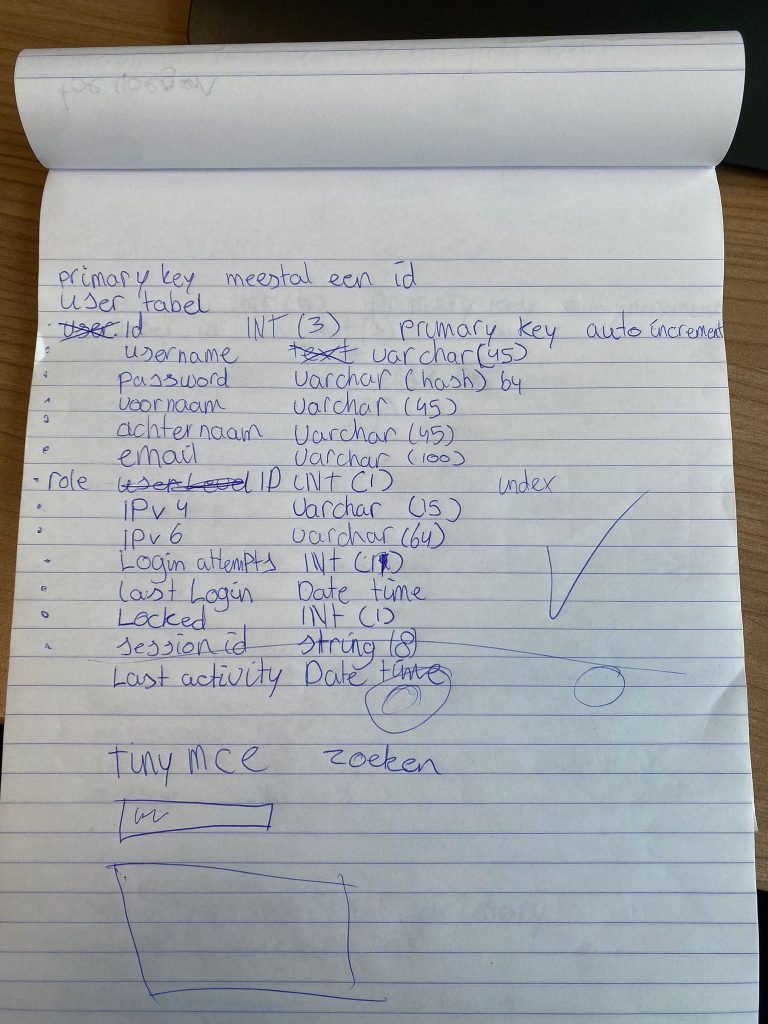 primary key meestal een id
user tabel
user id INT (3) primary key auto increment
username text varchar (45)
password varchar (hash) 64
voornaam varchar (45)
achternaam varchar (45)
email varchar (100)
role user level ID INT (1) index
IPv4 varchar (15)
IPv6 varchar (64)
Login attempts INt (1)
Last Login Date time
Locked INt (1)
session id string (8)
Last activity Date time
tiny mce zoeken